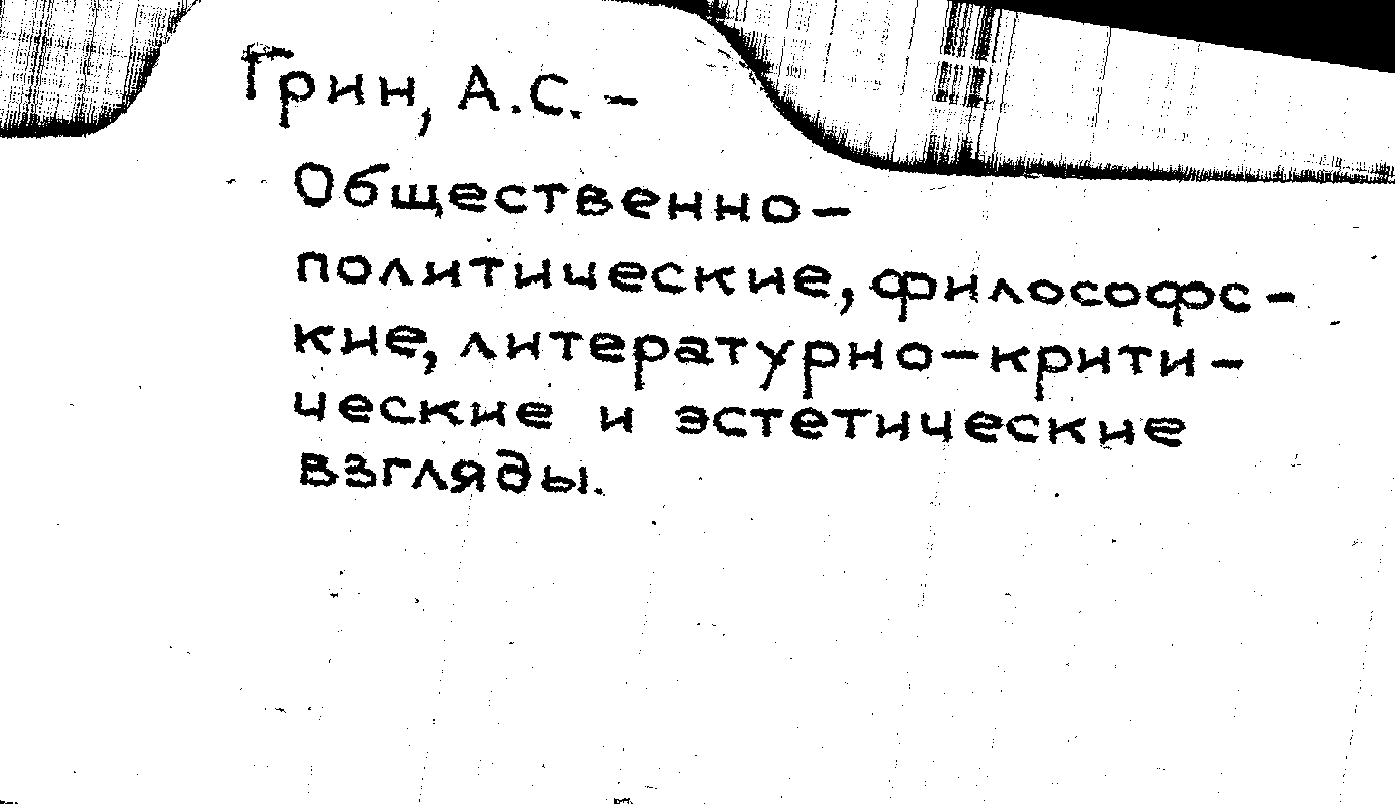 Грин, А.С. –
Общественно-
политические, философс-
кие, литературно-крити-
ческие и эстетические
взгляды.